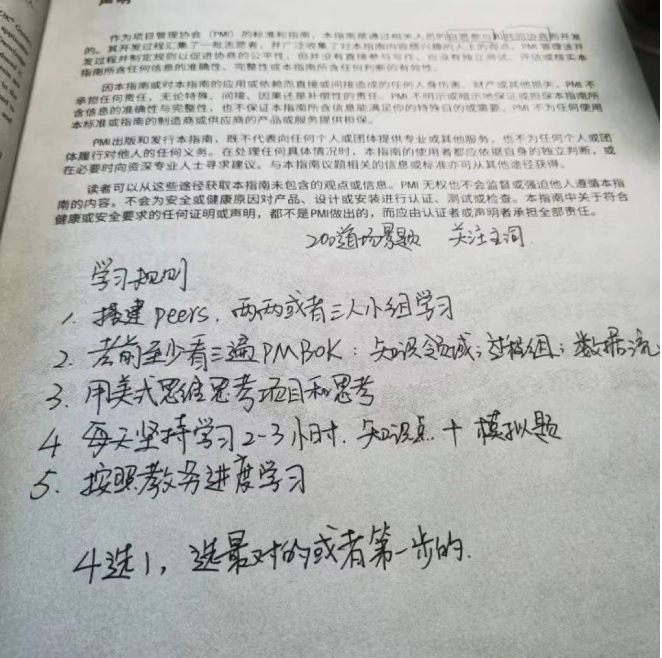 声明
作为项目管理协会（PMI）的标准和指南，本指南是通过相关人员的自愿参与和共同协商而开发
的。其开发过程汇集了一批志愿者，并广泛收集了对本指南内容感兴趣的人士的观点。PMI管理该开
发过程并制定规则以促进协商的公平性，但并没有直接参与写作，也没有独立测试、评估或核实本
指南所含任何信息的准确性、完整性或本指南所含任何判断的有效性。
因本指南或对本指南的应用或依赖而直接或间接造成的任何人身伤害、财产或其他损失，PMI不
承担任何责任，无论特殊、间接、因果还是补偿性的责任。PMI不明示或暗示地保证或担保本指南所
含信息的准确性与完整性，也不保证本指南所含信息能满足你的特殊目的或需要。PMI不为任何使用
本标准或指南的制造商或供应商的产品或服务提供担保。
PMI出版和发行本指南，既不代表向任何个人或团体提供专业或其他服务，也不为任何个人或团
体履行对他人的任何义务。在处理任何具体情况时，本指南的使用者都应依据自身的独立判断，或
在必要时向资深专业人士寻求建议。与本指南议题相关的信息或标准亦可从其他途径获得。
读者可以从这些途径获取本指南未包含的观点或信息。PMI无权也不会监督或强迫他人遵循本指
南的内容，不会为安全或健康原因对产品、设计或安装进行认证、测试或检查。本指南中关于符合
健康或安全要求的任何证明或声明，都不是PMI做出的，而应由认证者或声明者承担全部责任。
200道场景题 关注主词
学习规则
1. 搭建peers，两两或者三人小组学习
2. 考前至少看三遍PMBOK：知识领域；过程组；数据流
3. 用美式思维思考项目和思考
4 每天坚持学习2-3小时，知识点+模拟题
5. 按照教务进度学习
4选1，选最对的或者第一步的.